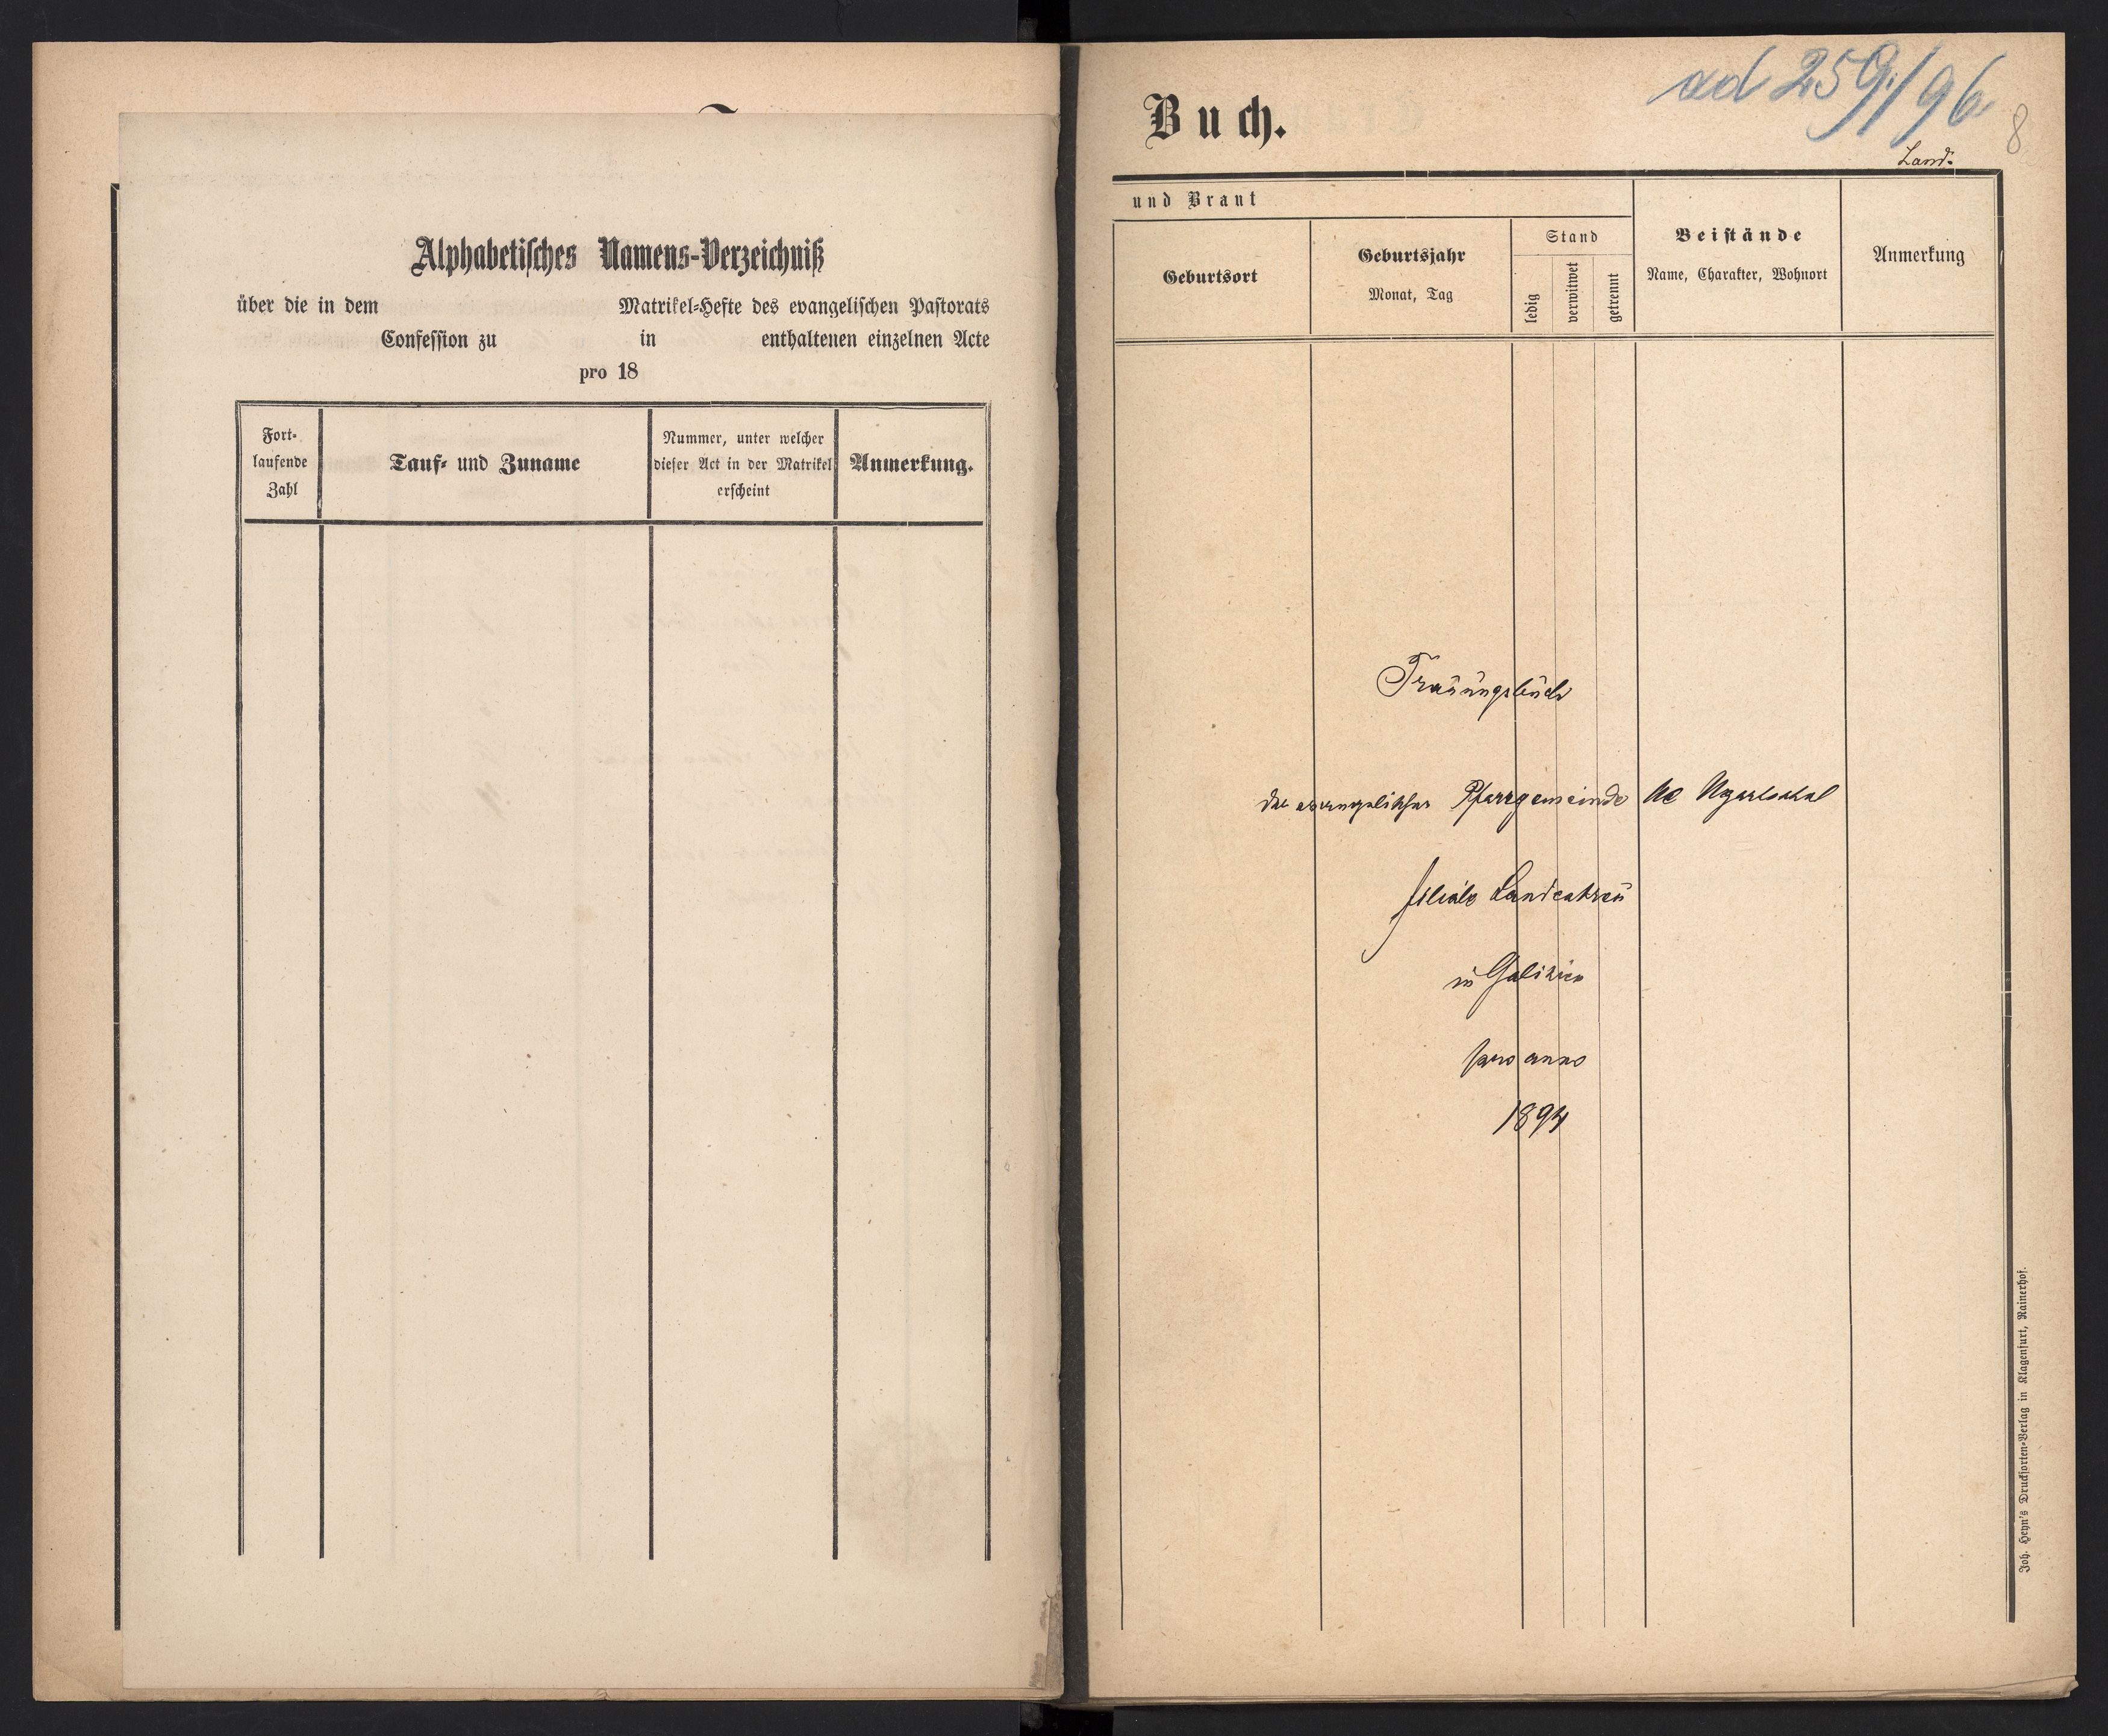 Alphabetisches Namens-Verzeichniß
über die in dem Matrikel-Hefte des evangelischen Pastorats
Confession zu in enthaltenen einzelnen Acte
pro 18
Fort-
laufende
Zahl
Tauf- und Zuname
Nummer, unter welcher
dieser Act in der Matrikel
erscheint
Anmerkung.
ad 259/96
8
Buch.
Land.
und Braut
Geburtsort
Geburtsjahr
Monat, Tag
Stand
ledig
verwitwet
getrennt
Beistände
Name, Charakter, Wohnort
Anmerkung
Trauungsbuch
der evangelischen Pfarrgemeinde AC Ugartsthal
filiale Landestreu
in Galizien
pro anno
1894
Joh. Heyn's Drucksorten-Verlag in Klagenfurt, Rainerhof.